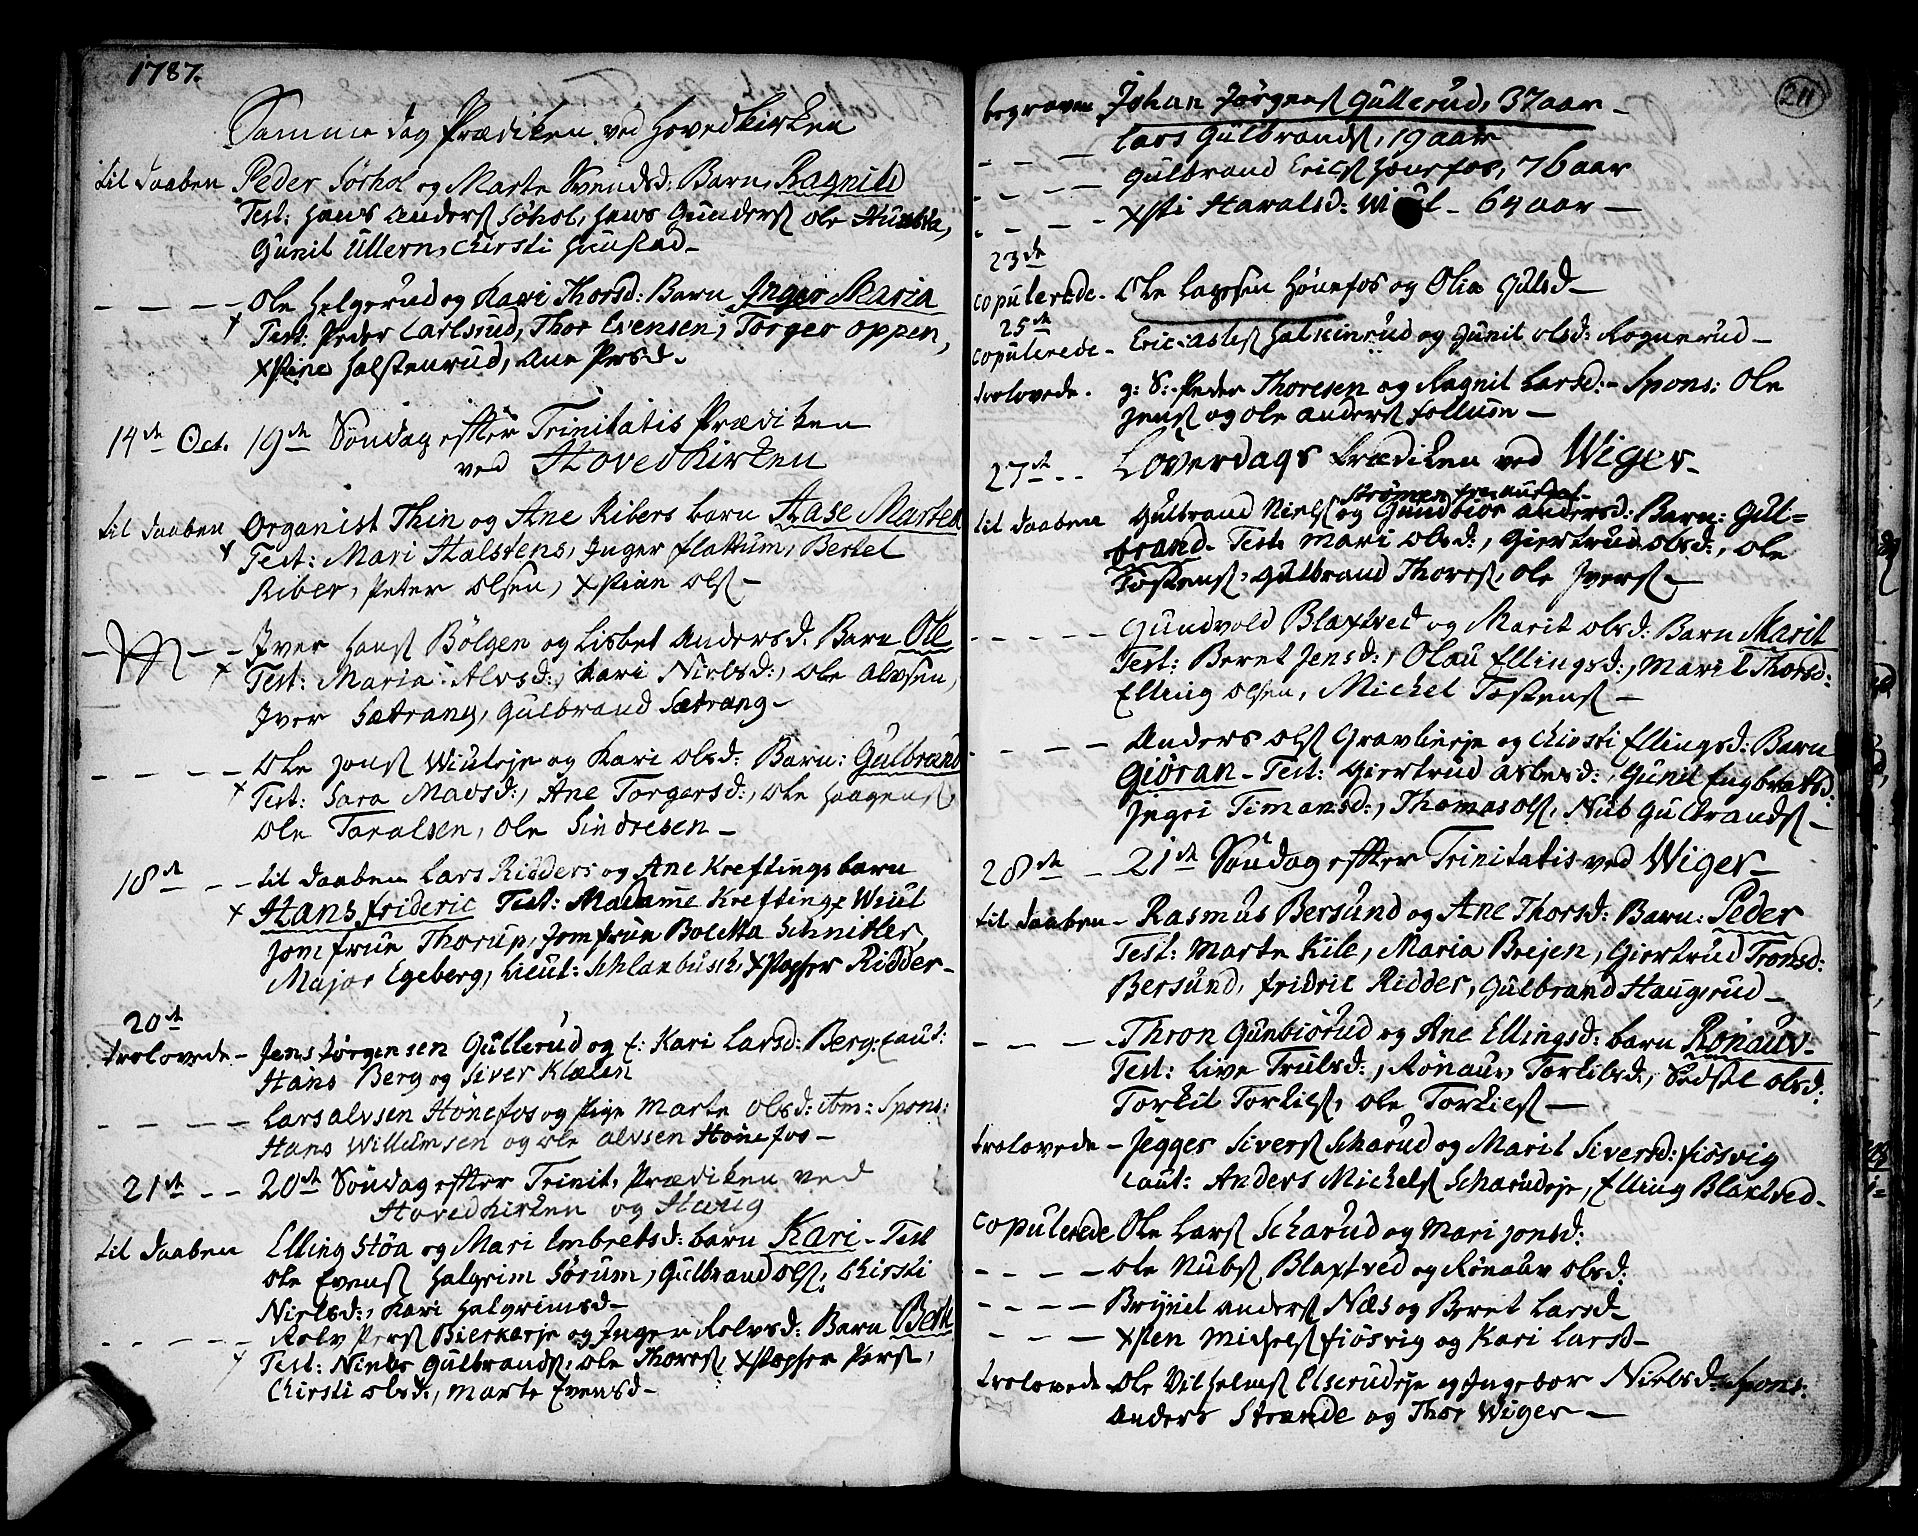 1787.
Samme dag Prædiken ved Hovedkirken
til daaben Peder Sørhol og Marte Svendsd: Barn, Ragnild
Test: Hans Anders Søhol, Hans Gunders Ole
Gunil Ullern, Chirsti Haustad
Ole Helgerud og Kari Thorsd: Barn Inger Maria
Test: Peder Carlsrud, Thor Evensen, Torger Oppen,
Xstine Halstenrud, Ane Persd.
14de Oct. 19de Søndag effter Trinitatis Prædiken
ved Hovedkirken
til daaben Organist Thin og Ane Ribers barn Aase Marten
Test: Mari Halstens, Inger flattum, Bertel
Riber, Peter Olsen, Xstian Ols
Iver Hans Bølgen og Lisbet Andersd: Barn Ole
Test: Maria Alvsd:, Kari Nielsd:, Ole Alvsen,
Iver Sætrang, Gulbrand Sætrang
Ole Jons Wiuleje og Kari Olsd: Barn: Gulbrand
Test: Sara Madsd:, Ane Torgersd:, Ole Haagens,
Ole Taralsen, Ole Sindresen
18de til daaben Lars Ridders og Ane Kreftings barn
Hans frideric Test: Madame Krefting, Wiul
Jomfrue Thorup, Jomfrue Boletta Schnitler,
Major Egeberg, Lieut: Schlanbusch, Xstopher Ridder
20de
trolovede Jens Jørgensen Gullerud og E: Kari Larsd: Berg: Caut:
Hans Berg og Siver Klæken
Lars Alvsen Hønefos og Pige Marte Olsd: ibm: Spons:
Hans Willumsen og Ole Alvsen Hønefos
21de 20de Søndag effter Trinit. Prædiken ved
Hovedkirken og Hvrig
til daaben Elling Støa og Mari Embretsd: barn Kari Test
Ole Evens Halgrim Sørum, Gulbrand Ols, Chirsti
Nielsd:, Kari Halgrimsd
Rolv Pers Bierkerje og Inger Rolvsd: Barn Berte
Test: Niels Gulbrands, Ole Thores, Xstopher Pers,
Chirsti Olsd:, Marte Evensd
211
begraven Johan Jørgens Gullerud, 37 aar
Lars Gulbrands, 19 aar
Gulbrand Erics Hønefos, 76 aar
Xsti Haralsd: Wiul 64 aar
23de
copulerede Ole Larsen Hønefos og Olia Gulsd
25de
copulerede Eric Asles Halkinrud og Gunil Olsd: Rognerud
trolovede g: S: Peder Thoresen og Ragnil Larsd: Spons: Ole
Jens og Ole Anders follum
27de Løverdags Prædiken ved Wiger
Strømen
til daaben Gulbrand Niels og Gundbior Andersd: Barn: Gul=
brand. Test: Mari Olsd:, Giertrud Olsd:, Ole
Tostens, Gulbrand Thores, Ole Ivers
Gundvold Blaxtved og Marit Olsd: Barn Marit
Test: Beret Jensd:, Olau Ellingsd:, Maril Thorsd:
Elling Olsen, Michel Tostens
Anders Ols Gravlieje og Chirsti Ellingsd: Barn
Giøran Test: Giertrud Aslesd:, Gunil Engbretsd:
Ingri Timansd:, Thomas Ols, Nub Gulbrands
28de 21de Søndag effter Trinitatis ved Wiger
til daaben Rasmus Bersund og Ane Thorsd: Barn: Peder
Test: Marte Kiil, Maria Beijen, Giertrud Tronsd:
Bersund, fridric Ridder, Gulbrand Haugerud
Thron Gunbiørud og Ane Ellingsd: barn Rønauv
Test: Live Trulsd:, Rønauv Torkilsd:, Sidsel Olsd:
Torkil Torkils, Ole Torkils
trolovede Jegger Sivers Scharud og Maril Siversd: fiøsvig
Caut: Anders Michels Scharudeje, Elling Blaxtved
copulerede Ole Lars Scharud og Mari Jonsd:
Ole Nubs Blaxtved og Rønauv Olsd:
Brynil Anders Næs og Beret Larsd
Xsten Michels fiøsvig og Kari Larsd
trolovede Ole Vilhelms Elserudeje og Ingebor Nielsd: Spons:
Anders Strande og Thor Wiger